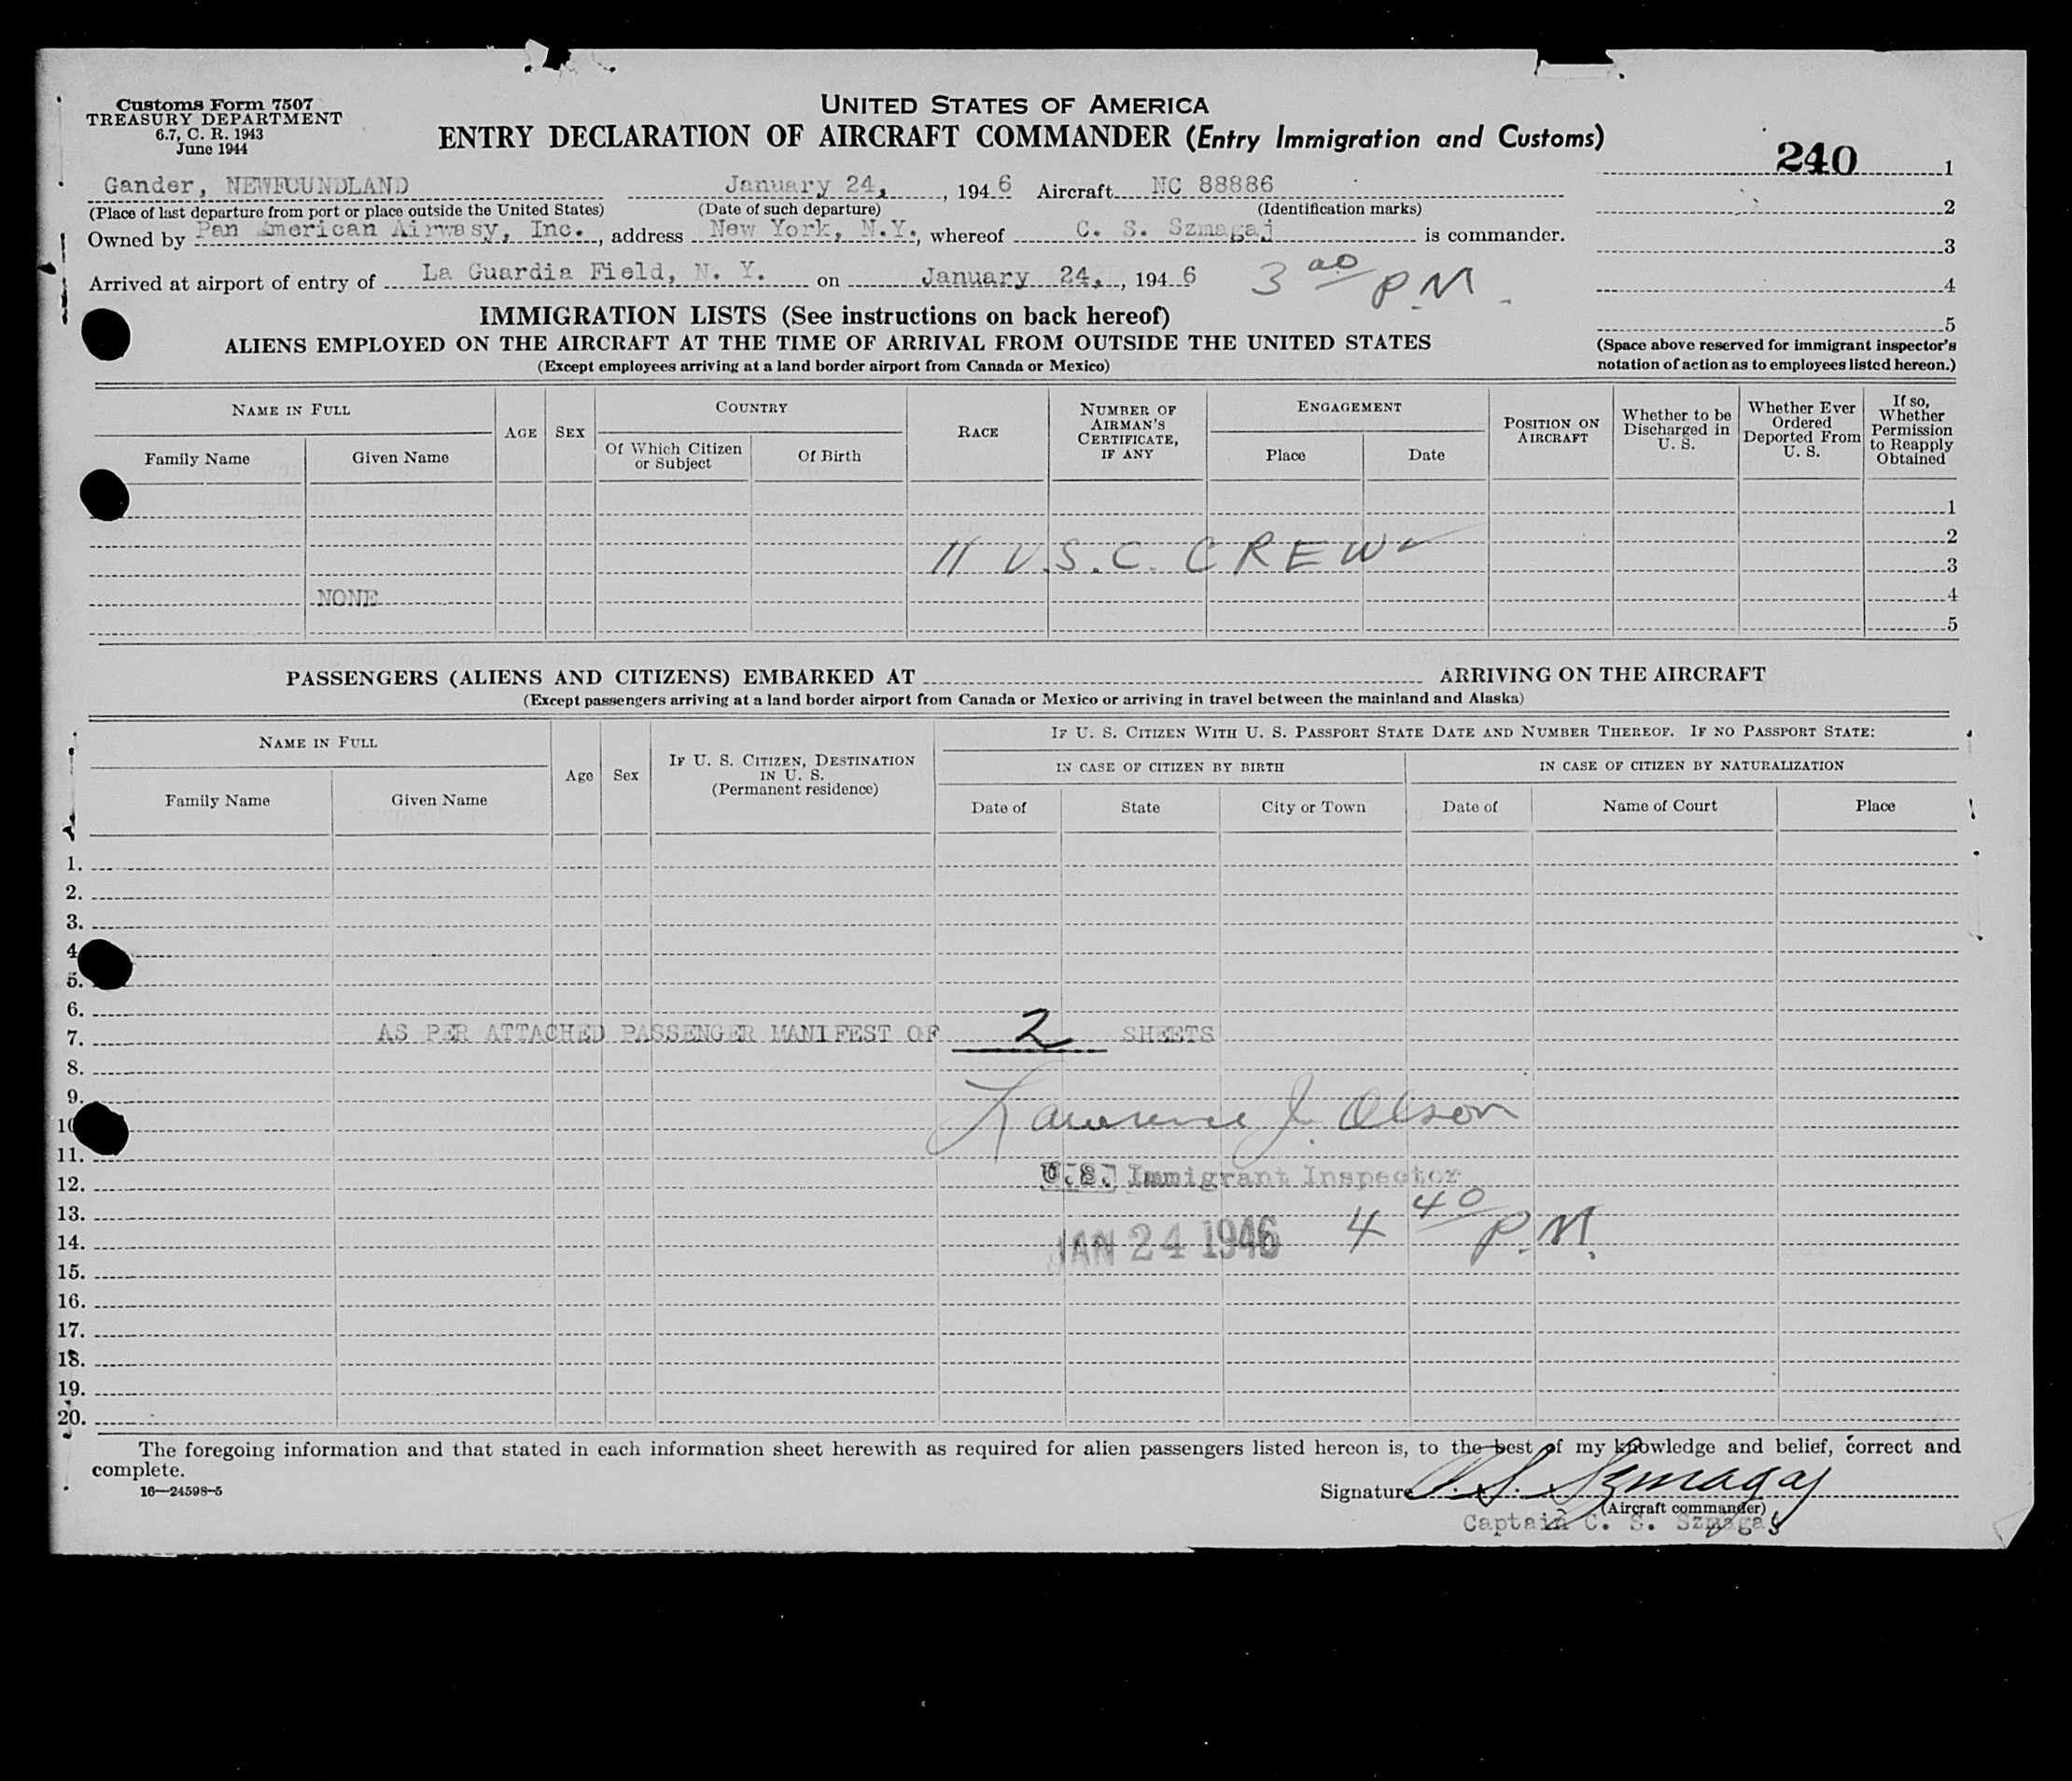 Customs Form 7507
TREASURY DEPARTMENT
6.7, C. R. 1943
June 1944
UNITED STATES OF AMERICA
ENTRY DECLARATION OF AIRCRAFT COMMANDER (Entry Immigration and Customs)
240 1
Gander, NEWFOUNDLAND January 24, , 194 6 Aircraft NC 88886
(Place of last departure from port or place outside the United States) (Date of such departure) (Identification marks) 2
Owned by Pan American Airwasy, Inc. , address New York, N.Y. , whereof C. S. Szmagaj is commander. 3
Arrived at airport of entry of La Guardia Field, N. Y. on January 24, , 194 6 3 P.M. 4
IMMIGRATION LISTS (See instructions on back hereof) 5
ALIENS EMPLOYED ON THE AIRCRAFT AT THE TIME OF ARRIVAL FROM OUTSIDE THE UNITED STATES
(Space above reserved for immigrant inspector's
notation of action as to employees listed hereon.)
(Except employees arriving at a land border airport from Canada or Mexico)
NAME IN FULL
Family Name
Given Name
AGE
SEX
COUNTRY
Of Which Citizen
or Subject
Of Birth
RACE
NUMBER OF
AIRMAN'S
CERTIFICATE,
IF ANY
ENGAGEMENT
Place
Date
POSITION ON
AIRCRAFT
Whether to be
Discharged in
U. S.
Whether Ever
Ordered
Deported From
U. S.
If so,
Whether
Permission
to Reapply
Obtained
1
2
11 U.S.C. CREW ✓
3
NONE 4
5
PASSENGERS (ALIENS AND CITIZENS) EMBARKED AT ARRIVING ON THE AIRCRAFT
(Except passengers arriving at a land border airport from Canada or Mexico or arriving in travel between the mainland and Alaska)
NAME IN FULL
Family Name
Given Name
Age
Sex
IF U. S. CITIZEN, DESTINATION
IN U. S.
(Permanent residence)
IF U. S. CITIZEN WITH U. S. PASSPORT STATE DATE AND NUMBER THEREOF. IF NO PASSPORT STATE:
IN CASE OF CITIZEN BY BIRTH
IN CASE OF CITIZEN BY NATURALIZATION
Date of
State
City or Town
Date of
Name of Court
Place
1.
2.
3.
4
5.
6.
7. AS PER ATTACHED PASSENGER MANIFEST OF 2 SHEETS
8.
9.
10 Lawrence J. Olson
11.
12. U.S. Immigrant Inspector
13.
14. JAN 24 1946 4 40 P.M.
15.
16.
17.
18.
19.
20.
The foregoing information and that stated in each information sheet herewith as required for alien passengers listed hereon is, to the best of my knowledge and belief, correct and
complete.
16—24598-5
Signature C. S. Szmagaj
(Aircraft commander)
Captain C. S. Szmagaj